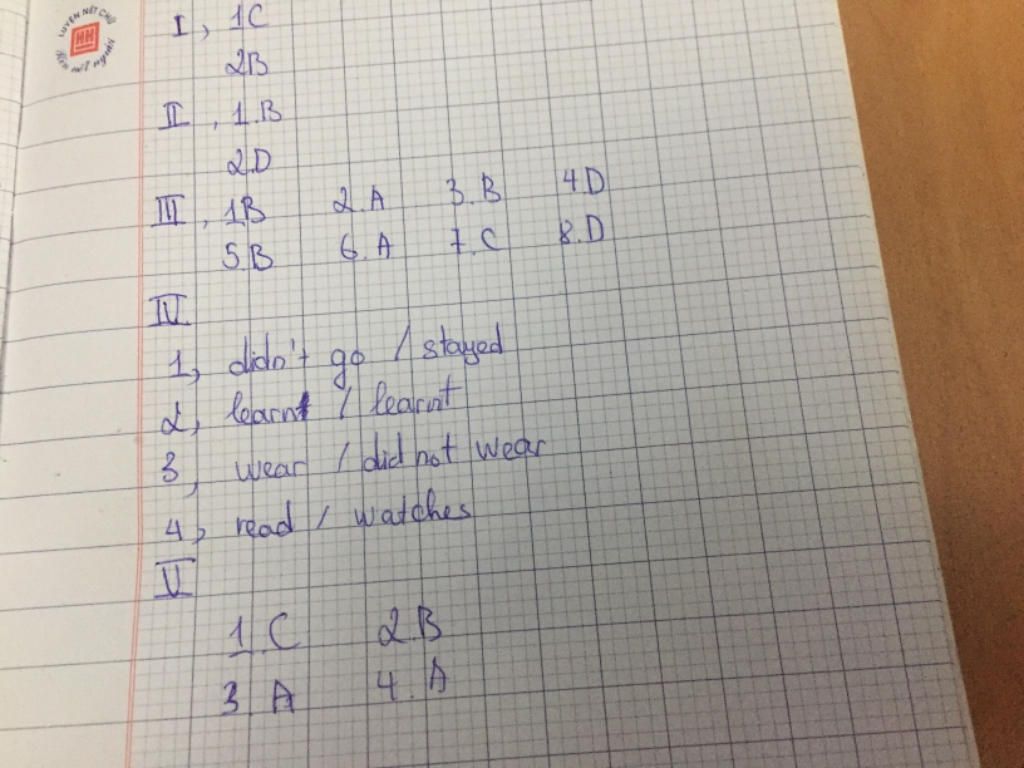 LUYỆN NÉT CHỮ
HH
Rèn nết người
I, 1C
2B
II, 1.B
2.D
III, 1B 2.A 3.B 4.D
5.B 6.A 7.C 8.D
IV
1, didn't go / stayed
2, learnt / learnt
3, wear / did not wear
4, read / watches
V
1.C 2.B
3 A 4.A